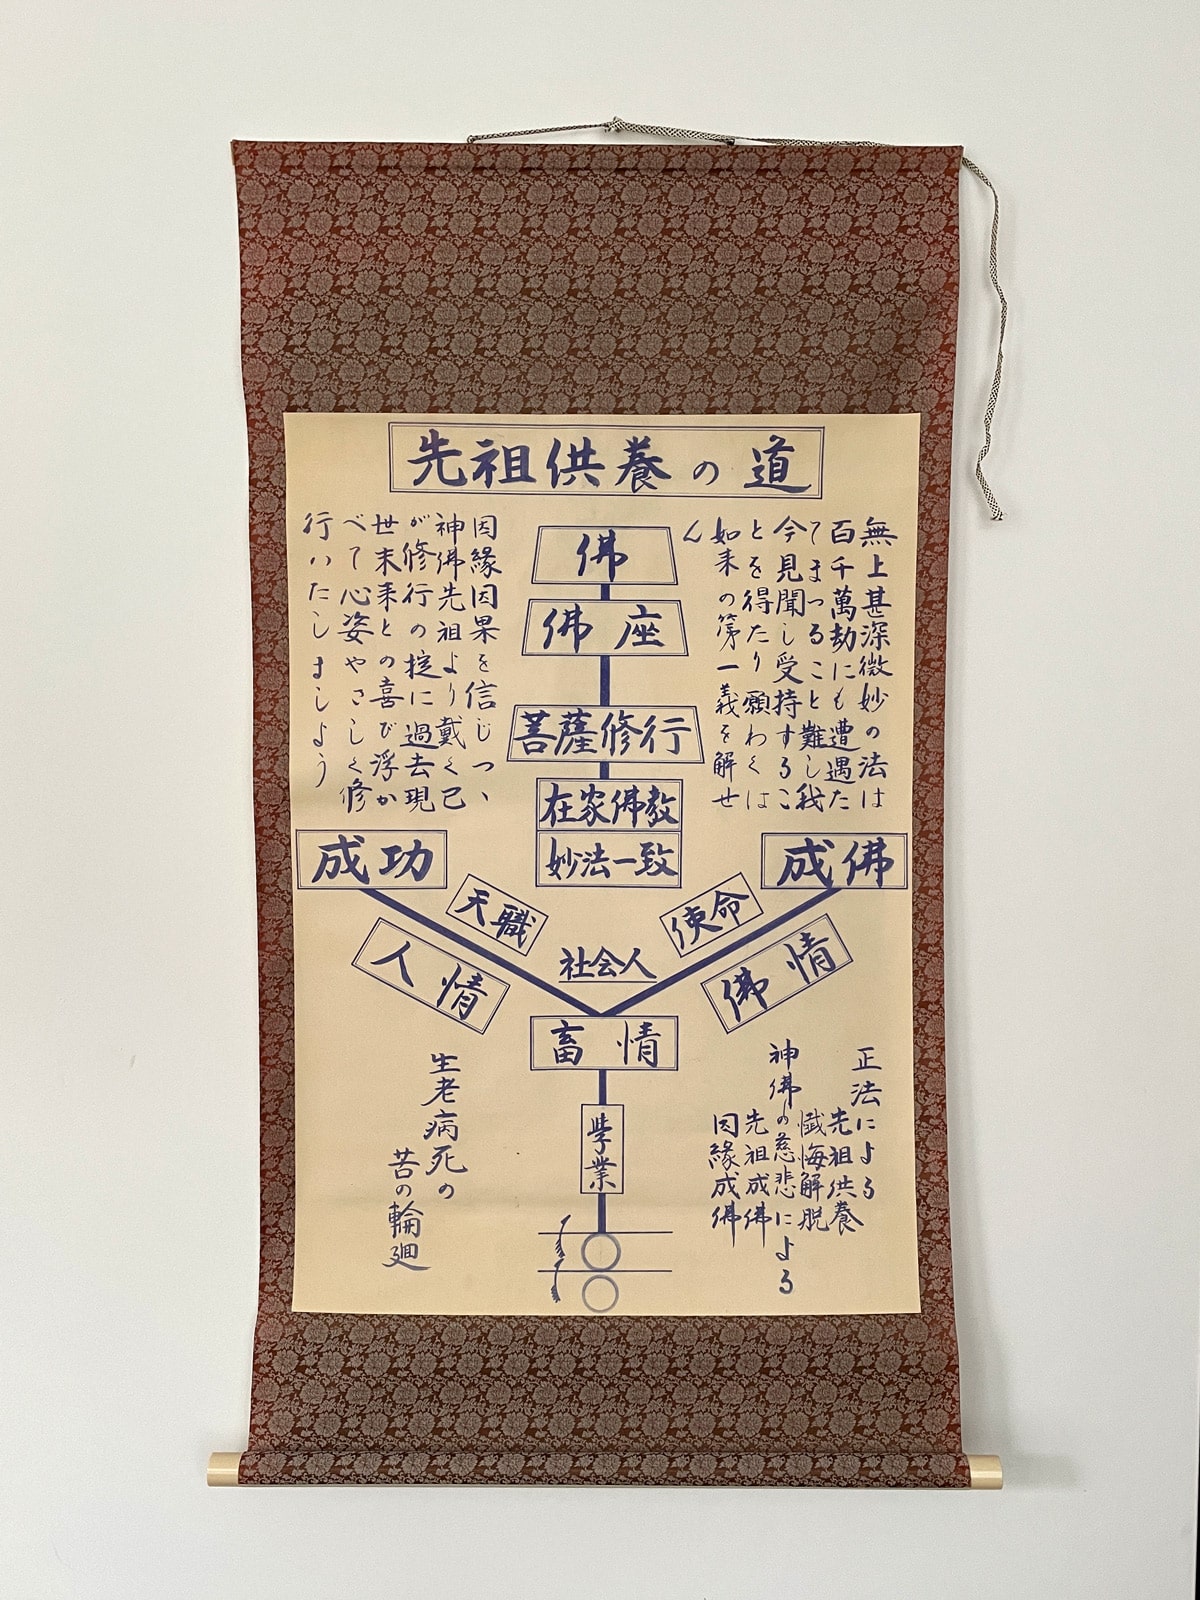 先祖供養の道
無上甚深微妙の法は
百千萬劫にも遭遇た
てまつること難し我
今見聞し受持するこ
とを得たり願わくは
如来の第一義を解せ
ん
佛
佛座
菩薩修行
在家佛教
妙法一致
因緣因果を信じつゝ
神佛先祖より戴く己
が修行の掟に過去現
世未来との喜び浮か
べて心姿やさしく修
行いたしましよう
成佛
使命
佛情
成功
天職
人情
社会人
畜情
學業
正法による
先祖供養
懺悔解脱
神佛の慈悲による
先祖成佛
因緣成佛
生老病死の
苦の輪廻